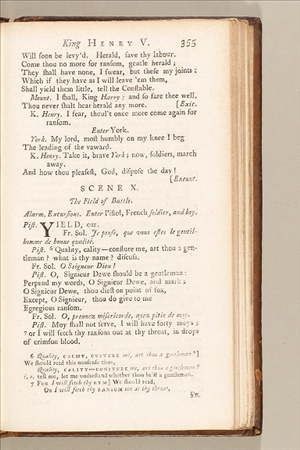 King HENRY V. 355
Will soon be levy'd. Herald, save thy labour.
Come thou no more for ransom, gentle herald;
They shall have none, I swear, but these my joints:
Which if they have as I will leave 'em them,
Shall yield them little, tell the Constable.
Mount. I shall, King Harry: and so fare thee well.
Thou never shalt hear herald any more. [Exit.
K. Henry. I fear, thou'lt once more come again for
ransom.
Enter York.
York. My lord, most humbly on my knee I beg
The leading of the vaward.
K. Henry. Take it, brave York; now, soldiers, march
away.
And how thou pleasest, God, dispose the day!
[Exeunt.
SCENE X.
The Field of Battle.
Alarm, Excursions. Enter Pistol, French soldier, and boy.
Pist. YIELD, cur.
Fr. Sol. Je pense, que vous estes le gentil-
homme de bonne qualité.
Pist. 6 Quality, cality—consture me, art thou a gen-
tleman? what is thy name? discuss.
Fr. Sol. O Seigneur Dieu!
Pist. O, Signieur Dewe should be a gentleman:
Perpend my words, O Signieur Dewe, and mark;
O Signieur Dewe, thou diest on point of fox,
Except, O Signieur, thou do give to me
Egregious ransom.
Fr. Sol. O, prennez misericorde, ayez pitié de moy.
Pist. Moy shall not serve, I will have forty moys;
7 or I will fetch thy ransom out at thy throat, in drops
of crimson blood.
6 Quality, CALMY, CUSTURE me, art thou a gentleman?]
We should read this nonsense thus,
Quality, CALITY—CONSTURE me, art thou a gentleman?
i. e. tell me, let me understand whether thou be'st a gentleman.
7 FOR I will fetch thy RYM] We should read,
OR I will fetch thy RANSOM out at thy throat,
&c.